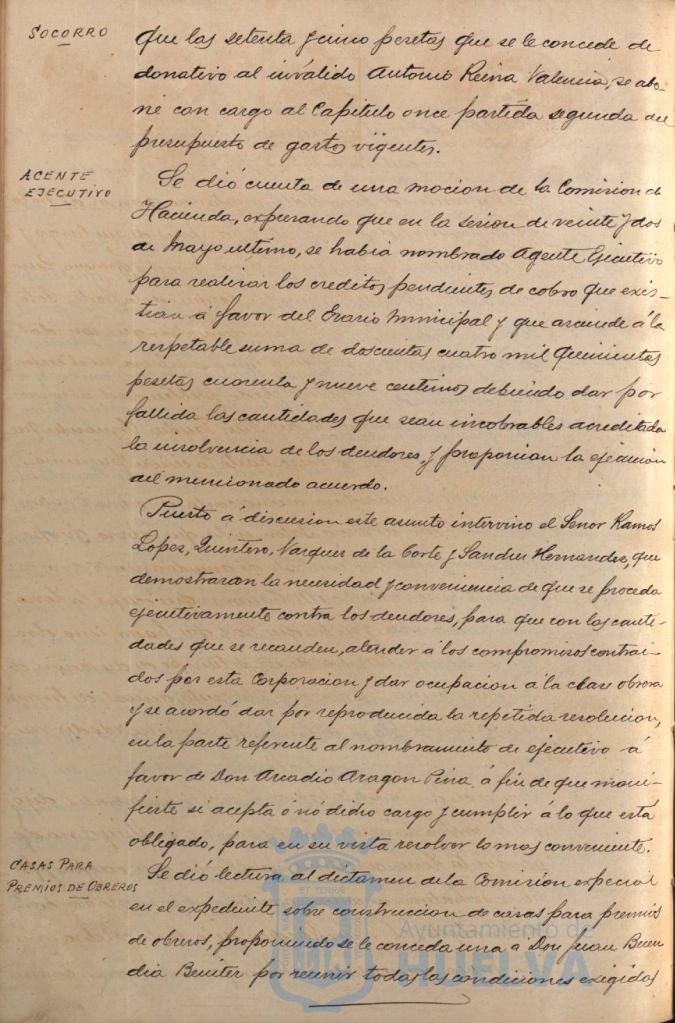 SOCORRO
que las setenta y cinco pesetas que se le concede de
donativo al inválido Antonio Reina Valencia, se abo-
ne con cargo al Capitulo once partida segunda del
presupuesto de gastos vigentes.
AGENTE
EJECUTIVO
Se dió cuenta de una mocion de la Comision de
Hacienda, expresando que en la sesion de veinte y dos
de Mayo ultimo, se habia nombrado Agente Ejecutivo
para realizar los creditos pendientes de cobro que exis-
tian á favor del Erario Municipal y que asciende á la
respetable suma de doscientas cuatro mil quinientas
pesetas cuarenta y nueve centimos debiendo dar por
fallida las cantidades que sean incobrables acreditada
la insolvencia de los deudores, y proponian la ejecucion
del mencionado acuerdo.
Puesto á discusion este asunto intervino el Señor Ramos
Lopez, Quintero, Vazquez de la Corte y Sanchez Hernandez, que
demostraron la necesidad y conveniencia de que se proceda
ejecutivamente contra los deudores, para que con las canti-
dades que se recauden, atender á los compromisos contrai-
dos por esta Corporacion y dar ocupacion á la clase obrera
y se acordó dar por reproducida la repetida resolucion,
en la parte referente al nombramiento de ejecutivo á
favor de Don Arcadio Aragon Pina, á fin de que mani-
fieste si acepta ó nó dicho cargo y cumplir á lo que está
obligado, para en su vista resolver lo mas conveniente.
CASAS PARA
PREMIOS DE OBREROS
Se dió lectura al dictamen de la Comision especial
en el expediente sobre construccion de casas para premios
de obreros, proponiendo se le conceda una á Don Juan Buen
dia Beniter por reunir todas las condiciones exigidas
Ayuntamiento de
HUELVA